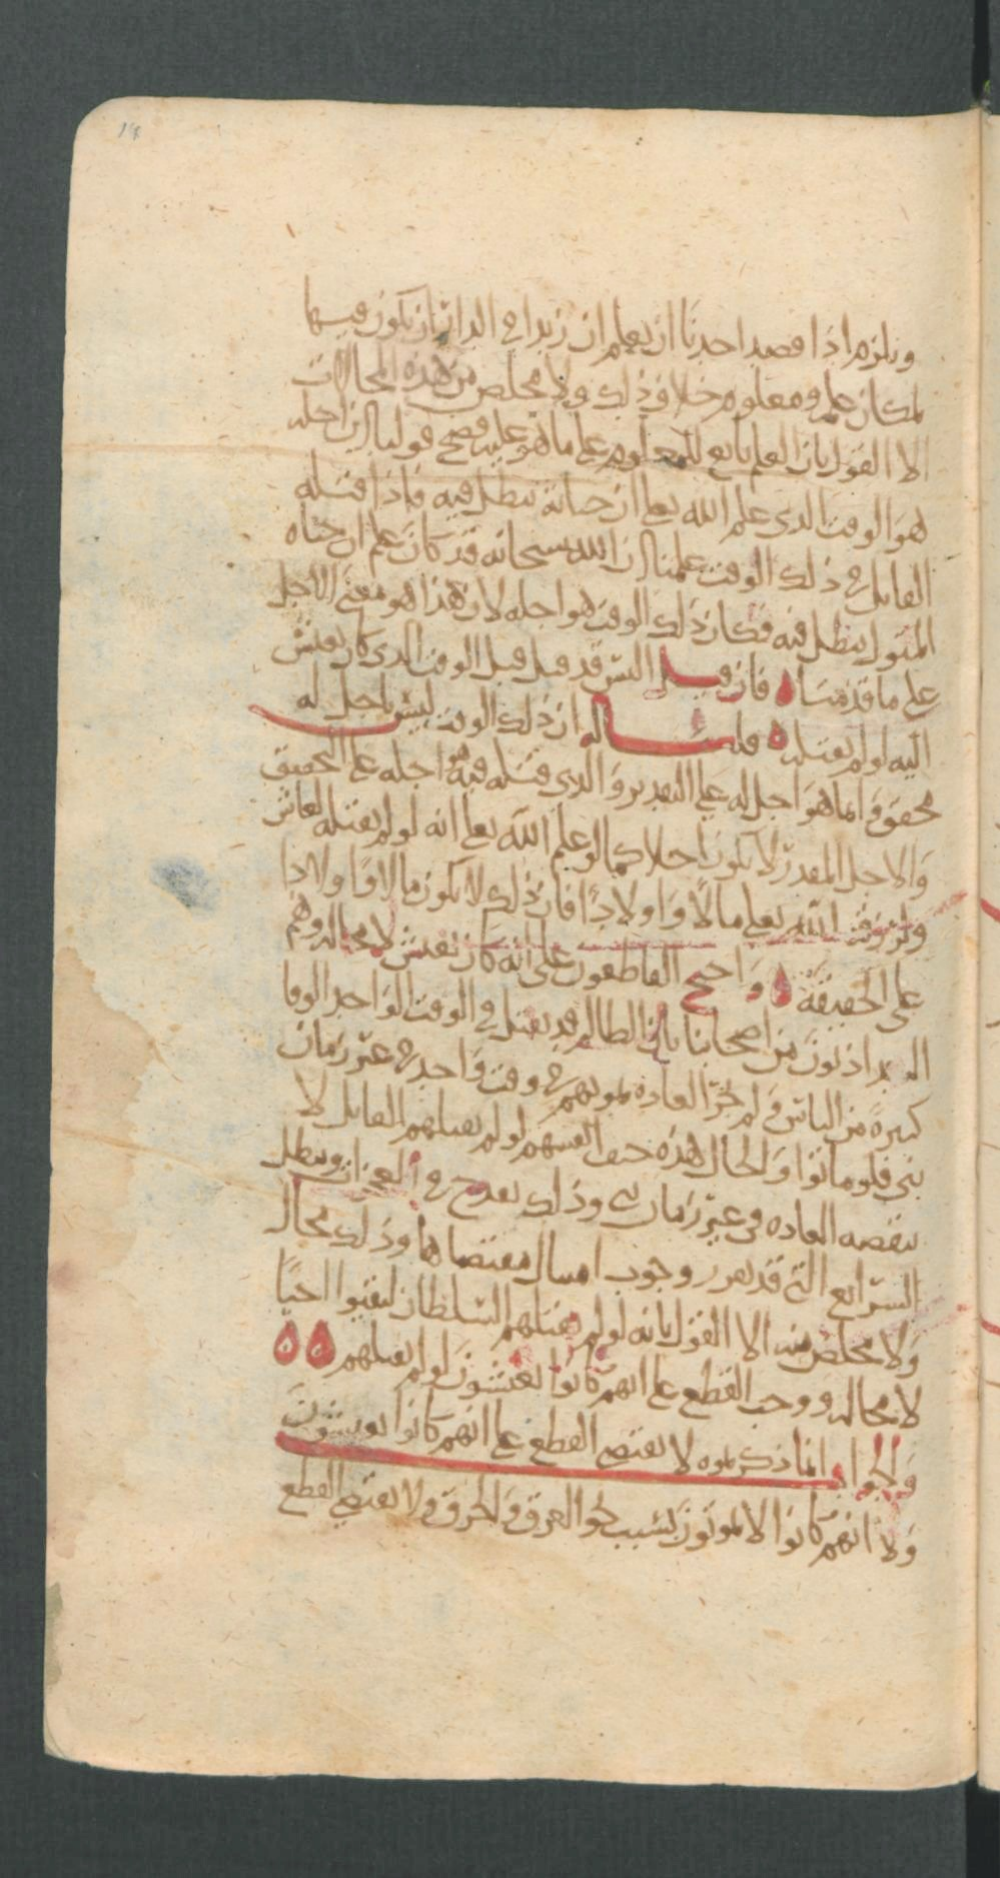 ويلزم اذا قصد احدنا ان يعلم ان زيدا في الدار ان يكون فيها
لمكان علمه ومعلوم خلاف ذلك ولا مخلص من هذه المحالات
الا القول بان العلم تابع للمعلوم على ما هو عليه فصح قولنا ان اجله
هو الوقت الذي علم الله تعالى ان حياته تبطل فيه فاذا قتله
القاتل في ذلك الوقت علمنا ان الله سبحانه قد كان علم ان حياه
المقتول تبطل فيه فكان ذلك الوقت هو اجله لان هذا هو معنى الاجل
على ما قدمنا ه فان قيل اليس قد قتل قبل الوقت الذي كان يعيش
اليه لو لم يقتله ه قلنا له ان ذلك الوقت ليس باجل له
محقق وانما هو اجل له على التقدير والذي قتله فيه هو اجله على التحقيق
والاجل المقدر لا يكون اجلا كما لو علم الله تعالى انه لو لم يقتله لعاش
ولرزقه الله تعالى مالا واولادا فان ذلك لا يكون مالا ولا اولادا
على الحقيقة ه واحتج القاطعون على انه كان يعيش لا محاله وهم
البغداذيون من اصحابنا بان الظالم قد يقتل في الوقت الواحد الوفا
كثيرة من الناس ولم تجر العاده بموتهم في وقت واحد في غير زمان
نبي فلو ماتوا والحال هذه حتف انفسهم لو لم يقتلهم القاتل لا
نتقضت العاده في غير زمان نبي وذلك يقدح في المعجزات ويبطل
الشرائع التي قد تقرر وجوب امتثال مقتضاها وذلك محال
ولا مخلص منه الا القول بانه لو لم يقتلهم السلطان لبقوا احيا
لا محاله ووجب القطع على انهم كانوا يعيشون لو لم يقتلهم ه ه
والجواب ان ما ذكرتموه لا يقتضي القطع على انهم كانوا يعيشون
ولا انهم كانوا لا يموتون بسبب نحو الغرق والحرق ولا يقتضي القطع